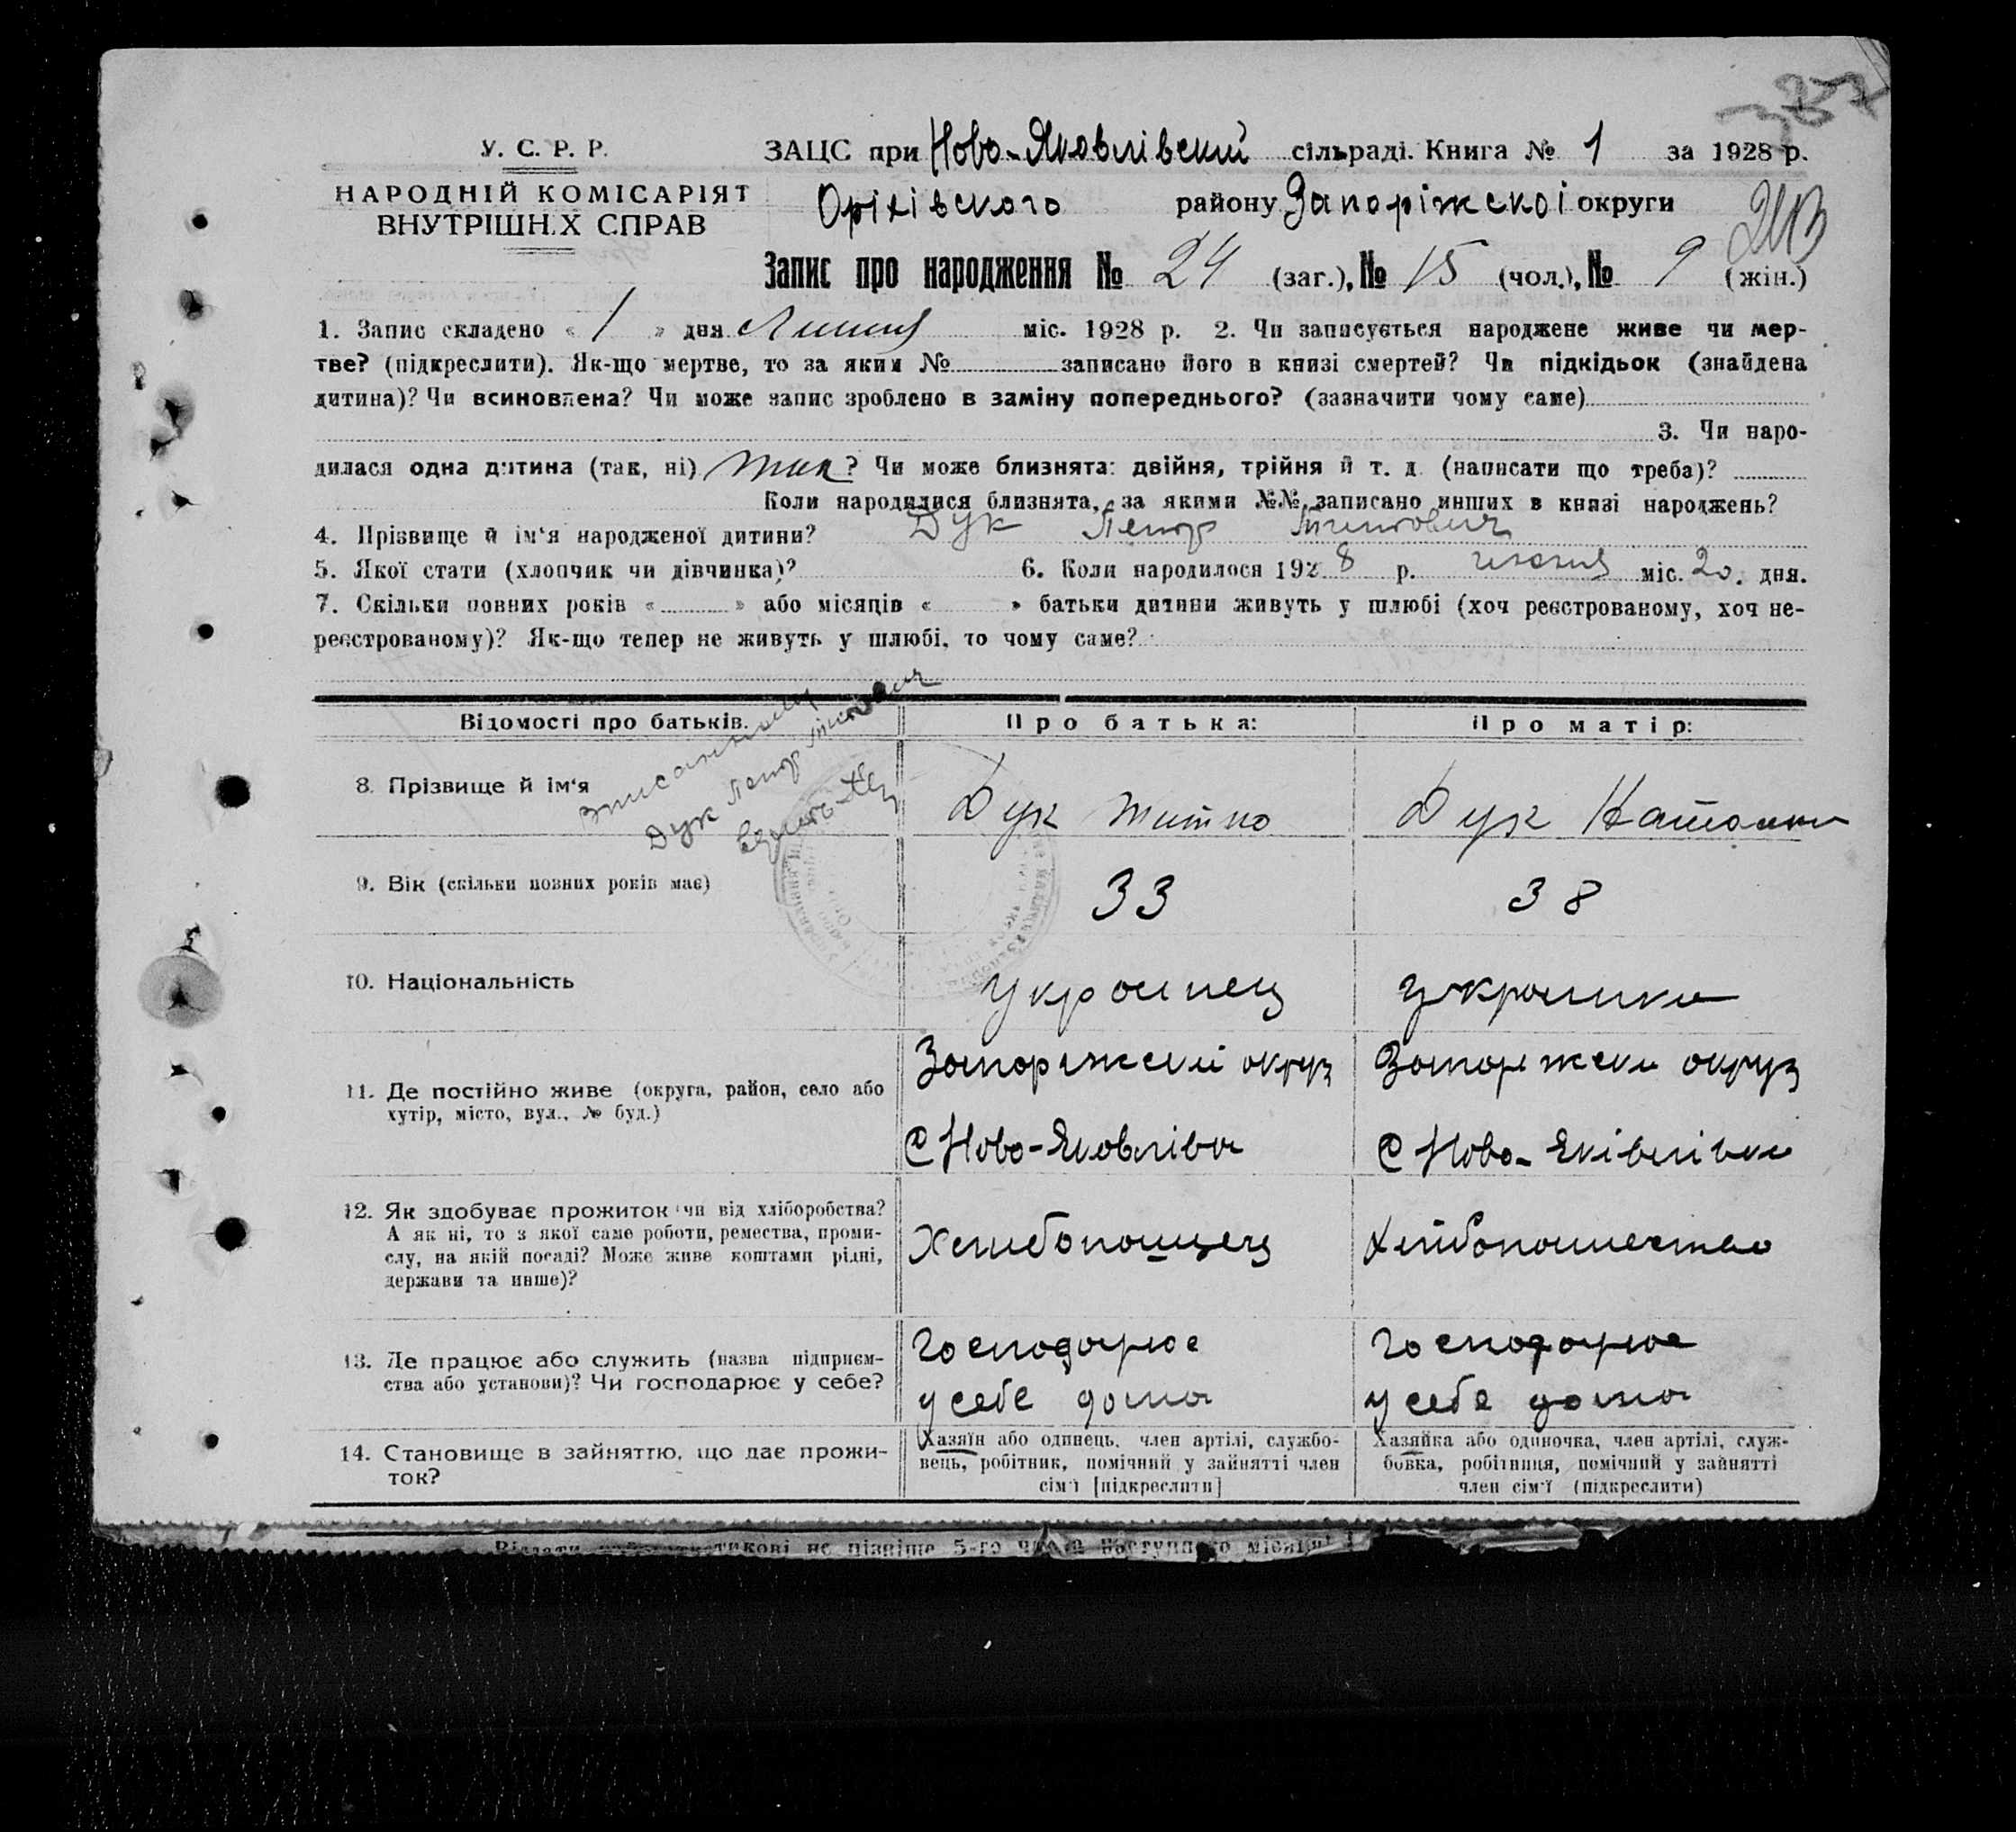 У. С. Р. Р.
НАРОДНІЙ КОМІСАРІЯТ
ВНУТРІШН.Х СПРАВ
ЗАЦС при Ново-Яковлівскій сільраді. Книга № 1 за 1928 р.
Оріхівского району Запоріжскоі округи
Запис про народження № 24 (заг.), № 15 (чол.), № 9 (жін.)
1. Запис складено « 1 » дня Липня міс. 1928 р. 2. Чи записується народжене живе чи мер-
тве? (підкреслити). Як-що мертве, то за яким № записано його в книзі смертей? Чи підкідьок (знайдена
дитина)? Чи всиновлена? Чи може запис зроблено в заміну попереднього? (зазначити чому саме)
3. Чи наро-
дилася одна дитина (так, ні) так? Чи може близнята: двійня, трійня й т. д. (написати що треба)?
Коли народилися близнята, за якими №№ записано инших в книзі народжень?
4. Прізвище й ім'я народженої дитини? Дук Петр Титович
5. Якої стати (хлопчик чи дівчинка)? 6. Коли народилося 1928 р. июня міс. 20. дня.
7. Скільки повних років « » або місяців « » батьки дитини живуть у шлюбі (хоч реєстрованому, хоч не-
реєстрованому)? Як-що тепер не живуть у шлюбі, то чому саме?
Відомості про батьків. Про батька: Про матір:
Дук Петр Титович
8. Прізвище й ім'я Дук Тит Дук Наталки
9. Вік (скільки повних років має) 33 38
10. Національність украинец украинка
11. Де постійно живе (округа, район, село або
хутір, місто, вул., № буд.)
Запоріжскій округ Запоріжски округ
С Ново-Яковлівка С Ново-Яківлівка
12. Як здобуває прожиток чи від хліборобства?
А як ні, то з якої саме роботи, ремества, проми-
слу, на якій посаді? Може живе коштами рідні,
держави та инше)?
Хлибопашец Хлибопашество
13. Де працює або служить (назва підприєм-
ства або установи)? Чи господарює у себе?
Господарює Господарює
у себе дома у себе дома
14. Становище в зайняттю, що дає прожи-
ток?
Хазяїн або одинець, член артілі, службо-
вець, робітник, помічний у зайнятті член
сім'ї [підкреслити]
Хазяйка або одиночка, член артілі, служ-
бовка, робітниця, помічний у зайнятті
член сім'ї (підкреслити)
не пізніше 5-го